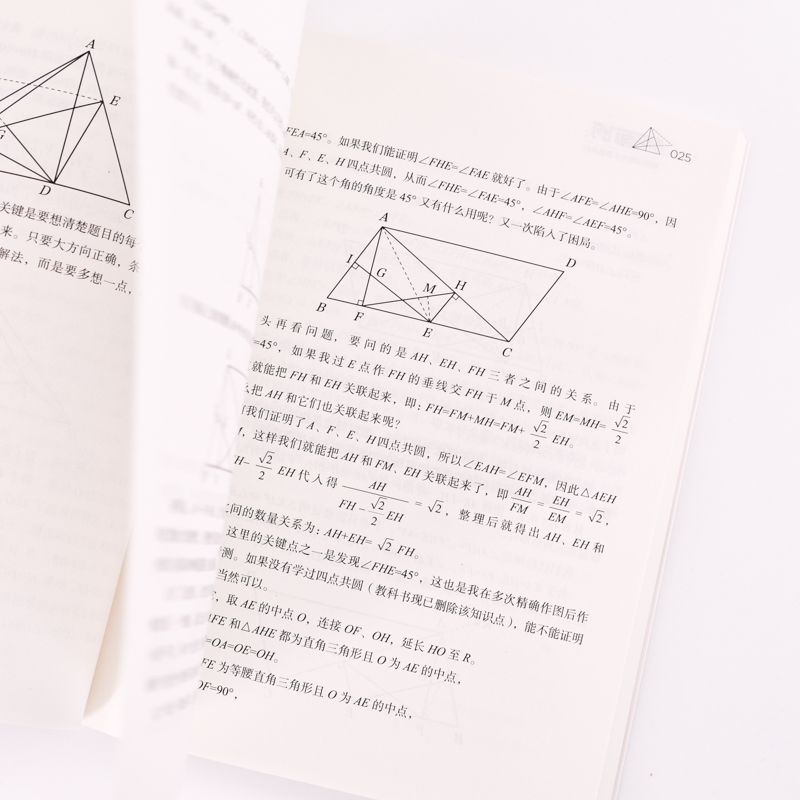 A
E
G
D
C
关键是要想清楚题目的每
来。只要大方向正确，条
解法，而是要多想一点，
025
FEA=45°。如果我们能证明∠FHE=∠FAE就好了。由于∠AFE=∠AHE=90°，因
A、F、E、H四点共圆，从而∠FHE=∠FAE=45°，∠AHF=∠AEF=45°。
可有了这个角的角度是 45° 又有什么用呢？又一次陷入了困局。
A
D
I
G
M
H
B
F
E
C
头再看问题，要问的是 AH、EH、FH 三者之间的关系。由于
=45°，如果我过 E 点作 FH 的垂线交 FH 于 M 点，则 EM=MH= √2/2
就能把 FH 和 EH 关联起来，即：FH=FM+MH=FM+ √2/2 EH。
把 AH 和它们也关联起来呢？
我们证明了A、F、E、H四点共圆，所以∠EAH=∠EFM，因此△AEH
M，这样我们就能把 AH 和 FM、EH 关联起来了，即 AH/FM = EH/EM = √2，
H− √2/2 EH 代入得 AH/(FH − √2/2 EH) = √2，整理后就得出 AH、EH 和
之间的数量关系为：AH+EH= √2 FH。
这里的关键点之一是发现∠FHE=45°，这也是我在多次精确作图后作
测。如果没有学过四点共圆（教科书现已删除该知识点），能不能证明
当然可以。
取 AE 的中点 O，连接 OF、OH，延长 HO 至 R。
AFE 和△AHE 都为直角三角形且 O 为 AE 的中点，
=OA=OE=OH。
FE 为等腰直角三角形且 O 为 AE 的中点，
OF=90°，